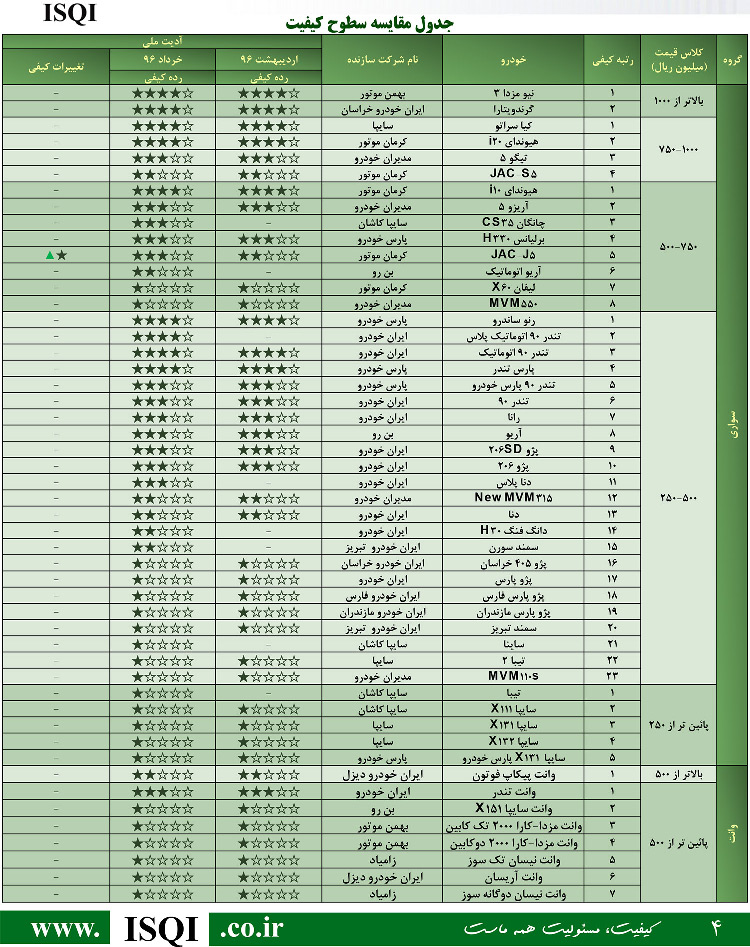 ISQI
جدول مقایسه سطوح کیفیت
گروه
کلاس قیمت
(میلیون ریال)
رتبه کیفی
خودرو
نام شرکت سازنده
آدیت ملی
اردیبهشت ۹۶
رده کیفی
خرداد ۹۶
رده کیفی
تغییرات کیفی
سواری
بالاتر از ۱۰۰۰
۱ نیو مزدا ۳ بهمن موتور ★★★★☆ ★★★★☆ -
۲ گرندویتارا ایران خودرو خراسان ★★★★☆ ★★★★☆ -
۷۵۰-۱۰۰۰
۱ کیا سراتو سایپا ★★★★☆ ★★★★☆ -
۲ هیوندای i۲۰ کرمان موتور ★★★★☆ ★★★★☆ -
۳ تیگو ۵ مدیران خودرو ★★★☆☆ ★★★☆☆ -
۴ JAC S۵ کرمان موتور ★★☆☆☆ ★★☆☆☆ -
۵۰۰-۷۵۰
۱ هیوندای i۱۰ کرمان موتور ★★★★☆ ★★★★☆ -
۲ آریزو ۵ مدیران خودرو ★★★☆☆ ★★★☆☆ -
۳ چانگان CS۳۵ سایپا کاشان - ★★★☆☆ -
۴ برلیانس H۳۳۰ پارس خودرو ★★★☆☆ ★★★☆☆ -
۵ JAC J۵ کرمان موتور ★★☆☆☆ ★★★☆☆ ▲★
۶ آریو اتوماتیک بن رو - ★★☆☆☆ -
۷ لیفان X۶۰ کرمان موتور ★☆☆☆☆ ★☆☆☆☆ -
۸ MVM۵۵۰ مدیران خودرو ★☆☆☆☆ ★☆☆☆☆ -
۲۵۰-۵۰۰
۱ رنو ساندرو پارس خودرو ★★★★☆ ★★★★☆ -
۲ تندر ۹۰ اتوماتیک پلاس ایران خودرو - ★★★★☆ -
۳ تندر ۹۰ اتوماتیک ایران خودرو ★★★★☆ ★★★★☆ -
۴ پارس تندر پارس خودرو ★★★★☆ ★★★★☆ -
۵ تندر ۹۰ پارس خودرو پارس خودرو ★★★☆☆ ★★★☆☆ -
۶ تندر ۹۰ ایران خودرو ★★★☆☆ ★★★☆☆ -
۷ رانا ایران خودرو ★★★☆☆ ★★★☆☆ -
۸ آریو بن رو ★★★☆☆ ★★★☆☆ -
۹ پژو ۲۰۶SD ایران خودرو ★★★☆☆ ★★★☆☆ -
۱۰ پژو ۲۰۶ ایران خودرو ★★★☆☆ ★★★☆☆ -
۱۱ دنا پلاس ایران خودرو - ★★★☆☆ -
۱۲ New MVM۳۱۵ مدیران خودرو ★★☆☆☆ ★★☆☆☆ -
۱۳ دنا ایران خودرو ★★☆☆☆ ★★☆☆☆ -
۱۴ دانگ فنگ H۳۰ ایران خودرو - ★★☆☆☆ -
۱۵ سمند سورن ایران خودرو تبریز - ★★☆☆☆ -
۱۶ پژو ۴۰۵ خراسان ایران خودرو خراسان ★☆☆☆☆ ★☆☆☆☆ -
۱۷ پژو پارس ایران خودرو ★☆☆☆☆ ★☆☆☆☆ -
۱۸ پژو پارس فارس ایران خودرو فارس ★☆☆☆☆ ★☆☆☆☆ -
۱۹ پژو پارس مازندران ایران خودرو مازندران ★☆☆☆☆ ★☆☆☆☆ -
۲۰ سمند تبریز ایران خودرو تبریز ★☆☆☆☆ ★☆☆☆☆ -
۲۱ ساینا سایپا کاشان - ★☆☆☆☆ -
۲۲ تیبا ۲ سایپا ★☆☆☆☆ ★☆☆☆☆ -
۲۳ MVM۱۱۰s مدیران خودرو ★☆☆☆☆ ★☆☆☆☆ -
پائین تر از ۲۵۰
۱ تیبا سایپا کاشان - ★☆☆☆☆ -
۲ سایپا X۱۱۱ سایپا کاشان ★☆☆☆☆ ★☆☆☆☆ -
۳ سایپا X۱۳۱ سایپا ★☆☆☆☆ ★☆☆☆☆ -
۴ سایپا X۱۳۲ سایپا ★☆☆☆☆ ★☆☆☆☆ -
۵ سایپا X۱۳۱ پارس خودرو پارس خودرو ★☆☆☆☆ ★☆☆☆☆ -
وانت
بالاتر از ۵۰۰
۱ وانت پیکاپ فوتون ایران خودرو دیزل ★★☆☆☆ ★★☆☆☆ -
پائین تر از ۵۰۰
۱ وانت تندر ایران خودرو ★★★☆☆ ★★★☆☆ -
۲ وانت سایپا X۱۵۱ بن رو ★☆☆☆☆ ★☆☆☆☆ -
۳ وانت مزدا-کارا ۲۰۰۰ تک کابین بهمن موتور ★☆☆☆☆ ★☆☆☆☆ -
۴ وانت مزدا-کارا ۲۰۰۰ دوکابین بهمن موتور ★☆☆☆☆ ★☆☆☆☆ -
۵ وانت نیسان تک سوز زامیاد ★☆☆☆☆ ★☆☆☆☆ -
۶ وانت آریسان ایران خودرو دیزل ★☆☆☆☆ ★☆☆☆☆ -
۷ وانت نیسان دوگانه سوز زامیاد ★☆☆☆☆ ★☆☆☆☆ -
۴
کیفیت، مسئولیت همه ماست
www. ISQI .co.ir